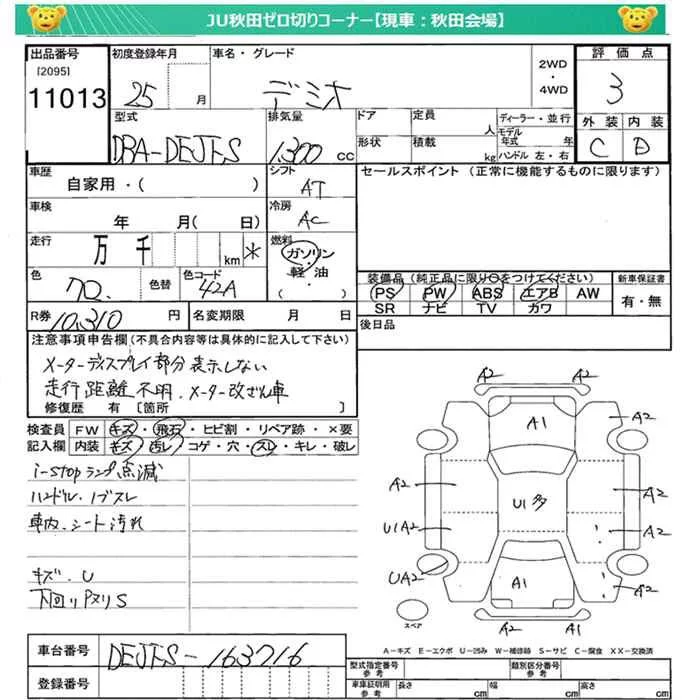 JU秋田ゼロ切りコーナー【現車：秋田会場】
出品番号
[2095]
11013
初度登録年月
25 月
車名・グレード
デミオ
2WD
・
4WD
評価点
3
外装 内装
C D
型式
DBA-DEJFS
排気量
1,300 cc
ドア
形状
定員
人
積載
kg
ディーラー・並行
モデル年式 年
ハンドル 左・右
車歴
自家用・( )
シフト
AT
車検
年 月( 日)
冷房
AC
走行
万 千 km *
燃料
ガソリン
・
軽油
( )
色
色替
色コード
42A
R券 10,310 円
名変期限 月 日
セールスポイント (正常に機能するものに限ります)
装備品 (純正品に限り○をつけてください)
PS PW ABS エアB AW
SR ナビ TV カワ
新車保証書
有・無
後日品
注意事項申告欄(不具合内容等は具体的に記入して下さい)
メーターディスプレイ部分表示しない
走行距離不明、メーター改ざん車
修復歴 有 [箇所 ]
検査員 FW キズ・飛石・ヒビ割・リペア跡・×要
記入欄 内装 キズ・汚レ・コゲ・穴・スレ・キレ・破レ
i-stopランプ点滅
ハンドル、ノブスレ
車内、シート汚れ
キズ、U
下回りPヌリS
A2
A2
A1
A2
A2
A2
U1多
U1A2
A2
UA2
A1
A2
A2
A1
スペア
A-キズ E-エクボ U-凹み W-補修跡 S-サビ C-腐食 XX-交換済
車台番号 DEJFS-163716
登録番号
型式指定番号
参考
類別区分番号
参考
車庫証明用
参考
長さ cm 幅 cm 高さ cm